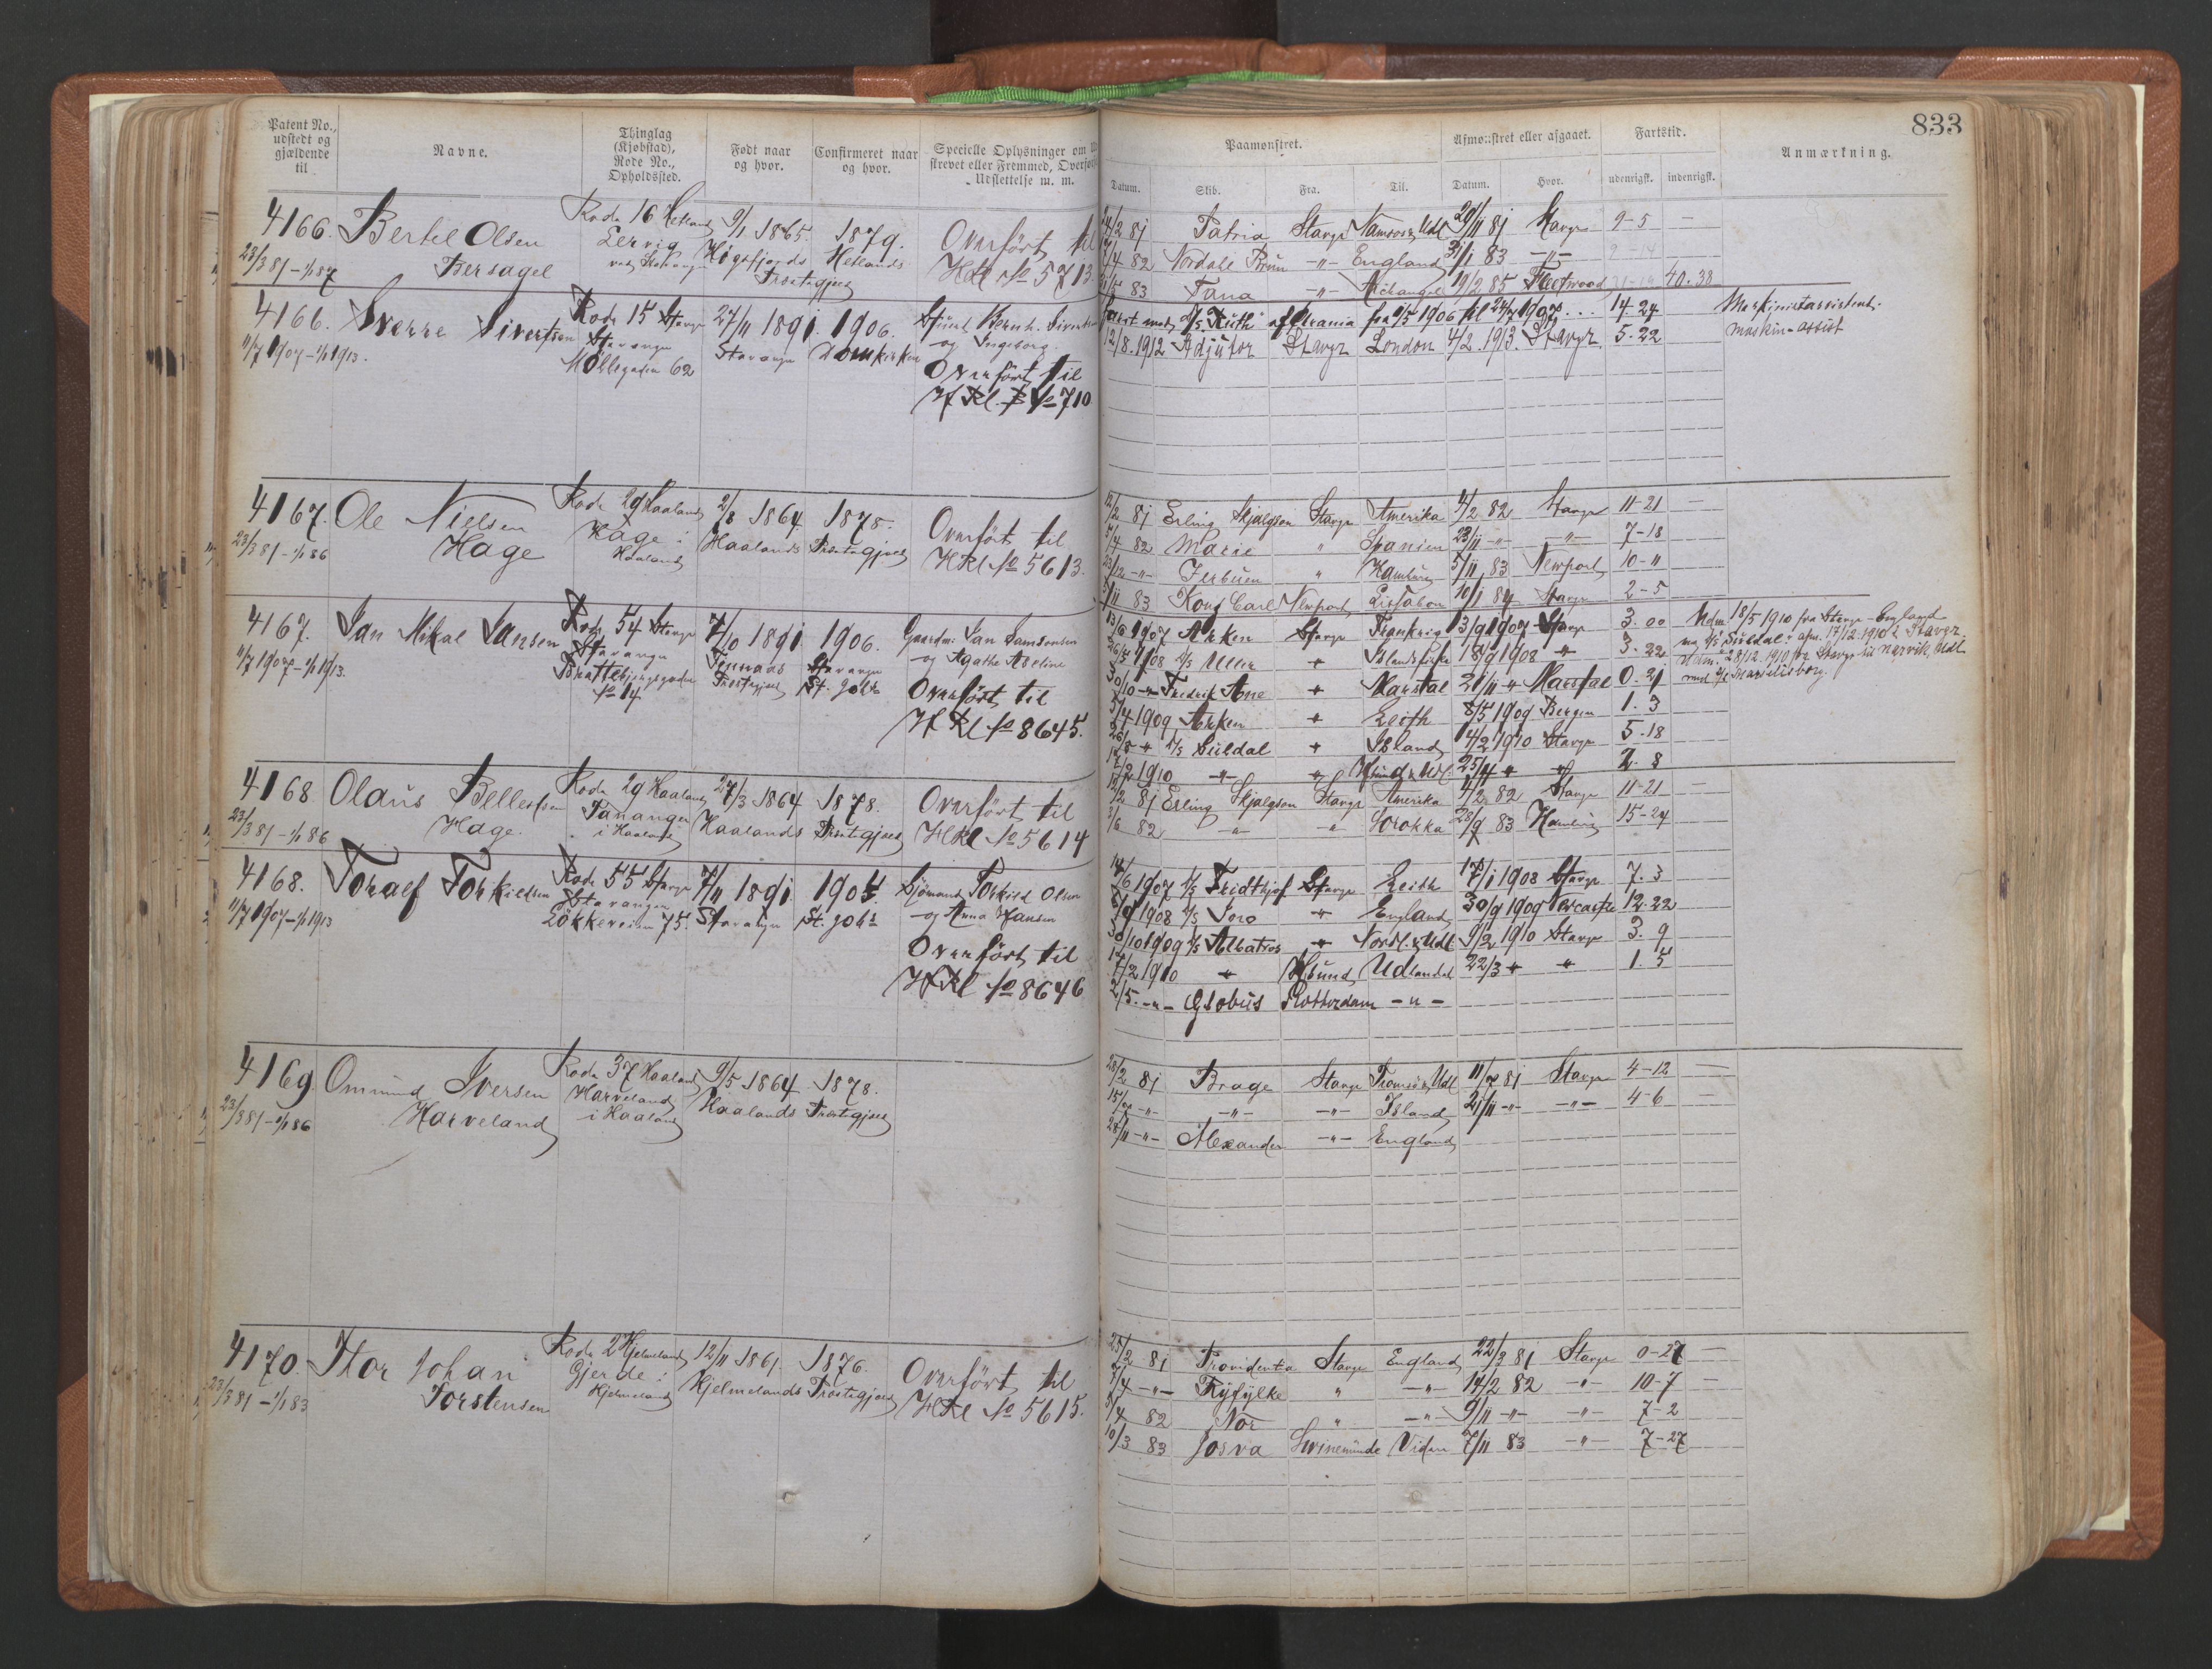 Patent No., udstedt og gjældende til
Navne.
Thinglag (Kjøbstad), Rode No., Opholdssted.
Født naar og hvor.
Confirmeret naar og hvor.
Specielle Oplysninger om
strevet eller Fremmed, Overført
Udslettelse m. m.
Paamønstret.
Afmønstret eller afgaaet.
Fartstid.
Anmærkning.
833
Datum. Skib. Fra. Til. Datum. Hvor. udenrigsk. indenrigsk.
4166. Bertel Olsen Rode 16 Hetland 9/1 1865. 1879. Overført til
23/3 81 – 1/1 87 Bersagel Lervig Høgsfjords Hetlands HRl No 5713.
Præstegjeld
2 81 Patria Stavgr Namsos & Udl 29/11 81 Stavgr 9-5 —
7/4 82 Nordahl Brun -"- England 31/1 83 -"- 9-14
83 Tana -"- Archangel 19/2 85 Fleetwood 40-38
4166. Sverre Sivertsen Rode 15 Stavgr 27/11 1891. 1906. Sjømd Bernh. Sivertsen
11/7 1907 – 1/1 1913. Stavanger Stavanger Domkirken og Ingeborg.
Møllegaden 62 Overført til
HRl. No 710
Faret med D/S "Ruth" af Chrania fra 1/5 1906 til 24/7 1907... 14-24 Maskinistassistent.
12/8.1912 Adjutor Stavgr London 4/2.1913. Stavgr. 5-22 maskin-assist
4167. Ole Nielsen Rode 29 Haaland 2/8 1864 1878. Overført til
23/3 81 – 1/1 86 Hage Hage i Haaland Haalands Præstegjeld HRl No 5613.
12/2 81 Erling Skjalgson Stavgr Amerika 4/2 82 Stavgr 11-21 —
5/4 82 Marie " Spanien 23/11 -"- -"- 7-18
23/12 -"- Jerbuen " Hamburg 5/11 83 Newport 10-11
5/11 83 Kong Carl Newport Lissabon 10/1 84 Stavgr 2-5
4167. Jan Mikal Jansen Rode 54 Stavgr 7/10 1891. 1906. Gaardm. Jan Samsonsen
11/7 1907 – 1/1 1913. Stavanger Fennaas Stavanger og Agathe Aseline
Brattebjergsgaden Præstegjeld St. Johs Overført til
No 14. HRl No 8645.
13/6 1907 Arken Stavgr Frankrig 13/9 1907 Stavgr 3.00
26/5 1908 D/S Uller " Islandsfiske 18/9 1908 " 3.22
30/10 -"- Fredrik Ane " Marstal 21/11 " Marstal 0.21
5/4 1909 Arken " Leith 8/5 1909 Bergen 1.3
26/8 " D/S Suldal " Island 14/2 1910 Stavgr 5.18
17/2 1910 " " Hsund & Udl. 25/4 " " 2.8
Udm. 18/5 1910 fra Stavgr – England
m. D/S Suldal: afm. 17/12.1910 i Stavgr.
Udm. 28/12.1910 fra Stavgr til Narvik, Udl.
med D/S Marselisborg.
4168 Olaus Bellesen Rode 29 Haaland 27/3 1864 1878. Overført til
23/3 81 – 1/1 86 Hage. Tananger i Haaland Haalands Præstegjeld HRl No 5614
12/2 81 Erling Skjalgson Stavgr Amerika 4/2 82 Stavgr 11-21 —
3/6 82 -"- -"- Sorokka 28/9 83 Hamburg 15-24
4168. Toralf Torkildsen Rode 55 Stavgr 7/11 1891. 1905. Sjømand Torkild Olsen
11/7 1907 – 1/1 1913 Stavanger Stavanger St. Johs og Anna Hansen
Løkkeveien 75. Overført til
HRl No 8646
14/6 1907 D/S Fridthjof Stavgr Leith 17/1 1908 Stavgr 7.3
5/9 1908 D/S Joro " England 30/9 1909 Newcastle 12.22
30/10 1909 D/S Albatros " Nordl. & Udl 9/2 1910 Stavgr 3.9
17/2 1910 " Hsund Udlandet 22/3 " " 1.5
2/5. -"- Globus Rotterdam -"-
4169. Ommund Iversen Rode 37 Haaland 9/5 1864 1878.
23/3 81 – 1/1 86 Harveland Harveland i Haaland Haalands Præstegjeld
28/2 81 Brage Stavgr Tromsø & Udl 11/7 81 Stavgr 4-12 —
15/7 -"- -"- -"- Island 21/11 -"- -"- 4-6 —
28/11 -"- Alexander -"- England
4170. Thor Johan Rode 2 Hjelmeland 12/11 1861. 1876. Overført til
23/3 81 – 1/1 83 Torstensen Gjerde i Hjelmeland Hjelmelands Præstegjeld HRl No 5615.
25/2 81 Providentia Stavgr England 22/3 81 Stavgr 0-27 —
7/4 -"- Ryfylke " -"- 14/2 82 -"- 10-7 —
3/4 82 Nor " -"- 9/11 -"- -"- 7-2
10/3 83 Josva Swinemünde Viden 7/11 83 -"- 7-27